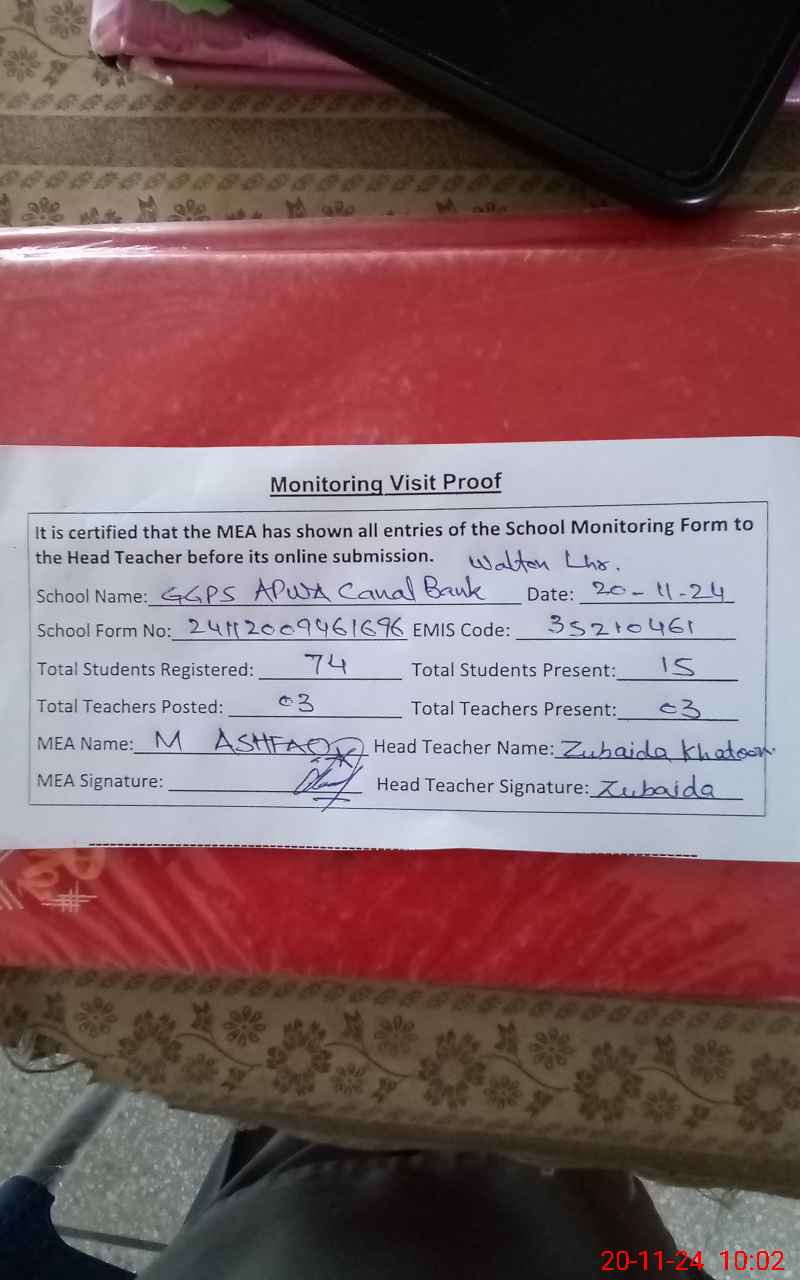 Monitoring Visit Proof
It is certified that the MEA has shown all entries of the School Monitoring Form to
the Head Teacher before its online submission.
Walton Lhr.
School Name: GGPS APWA Canal Bank Date: 20-11-24
School Form No: 24112009461696 EMIS Code: 35210461
Total Students Registered: 74 Total Students Present: 15
Total Teachers Posted: 03 Total Teachers Present: 03
MEA Name: M ASHFAQ Head Teacher Name: Zubaida Khatoon
MEA Signature: Head Teacher Signature: Zubaida
20-11-24 10:02